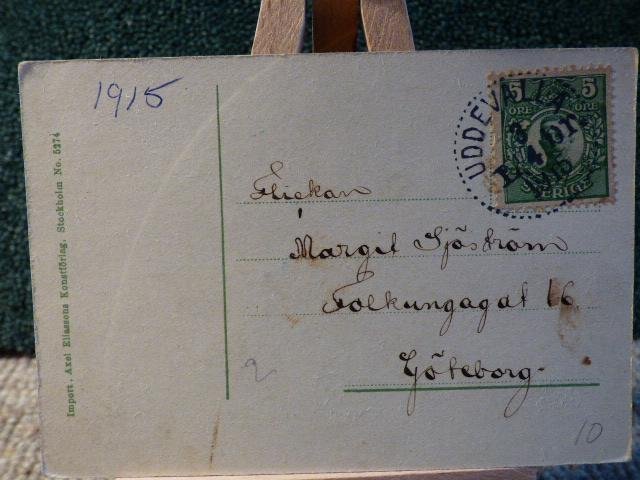 1915
Import. Axel Eliassons Konstförlag. Stockholm No. 5274
5 5
ÖRE ÖRE
SVERIGE
UDDEVALLA
Flickan
Margit Sjöström
Folkungagat 16
Göteborg
2
10